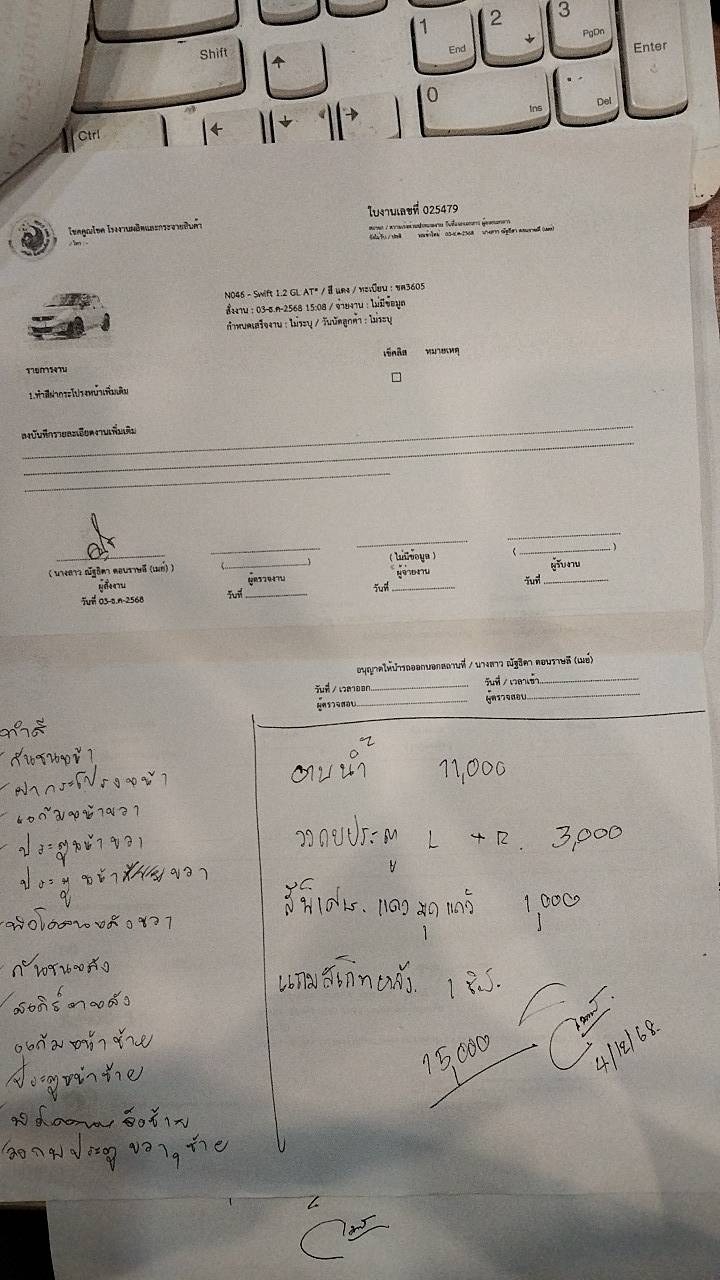 Shift
1
End
2
3
PgDn
Enter
Ctrl
0
Ins
.
Del
โชคคูณโชค โรงงานผลิตและกระจายสินค้า
ใบงานเลขที่ 025479
N046 - Swift 1.2 GL AT* / สี แดง / ทะเบียน : ขต3605
สั่งงาน : 03-ธ.ค-2568 15:08 / จ่ายงาน : ไม่มีข้อมูล
กำหนดเสร็จงาน : ไม่ระบุ / วันนัดลูกค้า : ไม่ระบุ
รายการงาน เช็คลิส หมายเหตุ
1.ทำสีฝากระโปรงหน้าเพิ่มเติม
ลงบันทึกรายละเอียดงานเพิ่มเติม
( นางสาว ณัฐธิดา ดอนราษลี (เมย์) )
ผู้สั่งงาน
วันที่ 03-ธ.ค-2568
ผู้ตรวจงาน
วันที่
( ไม่มีข้อมูล )
ผู้จ่ายงาน
วันที่
ผู้รับงาน
วันที่
อนุญาตให้นำรถออกนอกสถานที่ / นางสาว ณัฐธิดา ดอนราษลี (เมย์)
วันที่ / เวลาออก วันที่ / เวลาเข้า
ผู้ตรวจสอบ ผู้ตรวจสอบ
ทำสี
กันชนหน้า
ฝากระโปรงหน้า
แก้มหน้าขวา
ประตูหน้าขวา
ประตูหน้า ขวา
กันชนหลัง
แก้มหน้าซ้าย
ประตูหน้าซ้าย
ประตู ขวา, ซ้าย
อบน้ำ 11,000
ประตู L + R. 3,000
สีพิเศษ. แดงมุกแก้ว 1,000
แถมสเกิทหลัง. 1 ชิ้น.
15,000
4/12/68